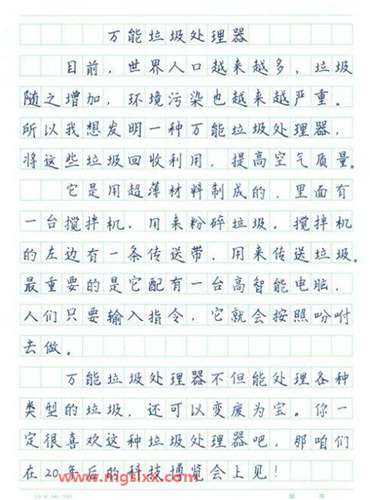 万能垃圾处理器
目前，世界人口越来越多，垃圾
随之增加，环境污染也越来越严重。
所以我想发明一种万能垃圾处理器，
将这些垃圾回收利用，提高空气质量。
它是用超薄材料制成的，里面有
一台搅拌机，用来粉碎垃圾，搅拌机
的左边有一条传送带，用来传送垃圾。
最重要的是它配有一台高智能电脑，
人们只要输入指令，它就会按照吩咐
去做。
万能垃圾处理器不但能处理各种
类型的垃圾，还可以变废为宝。你一
定很喜欢这种垃圾处理器吧，那咱们
在20年后的科技博览会上见！
www.mgslxx.com